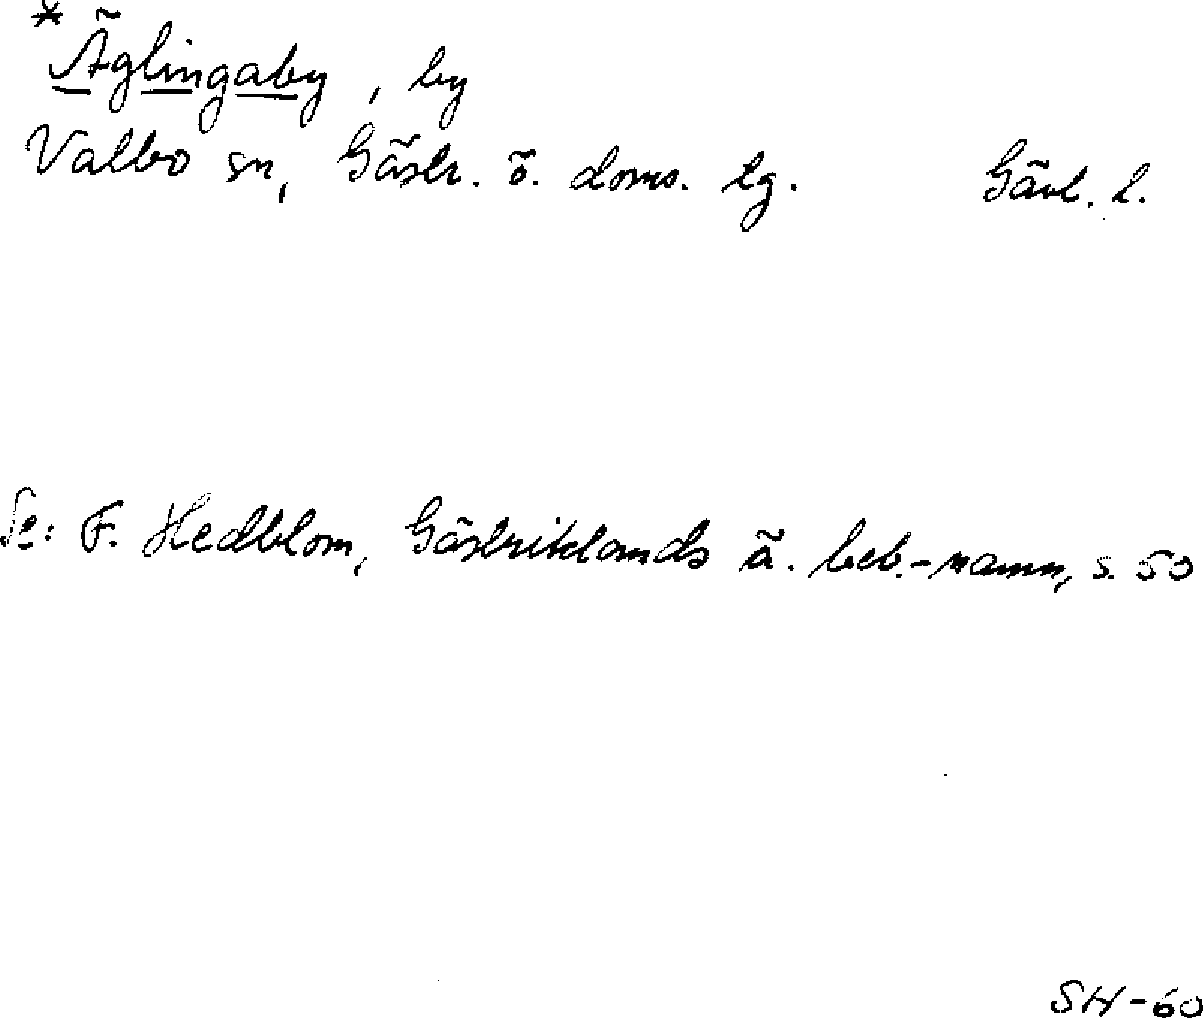 *Äglingaby, by
Valbo sn, Gästr. ö. doms. tg. Gävl. l.
Se: F. Hedblom, Gästriklands ä. beb.-namn, s. 50
SH-60